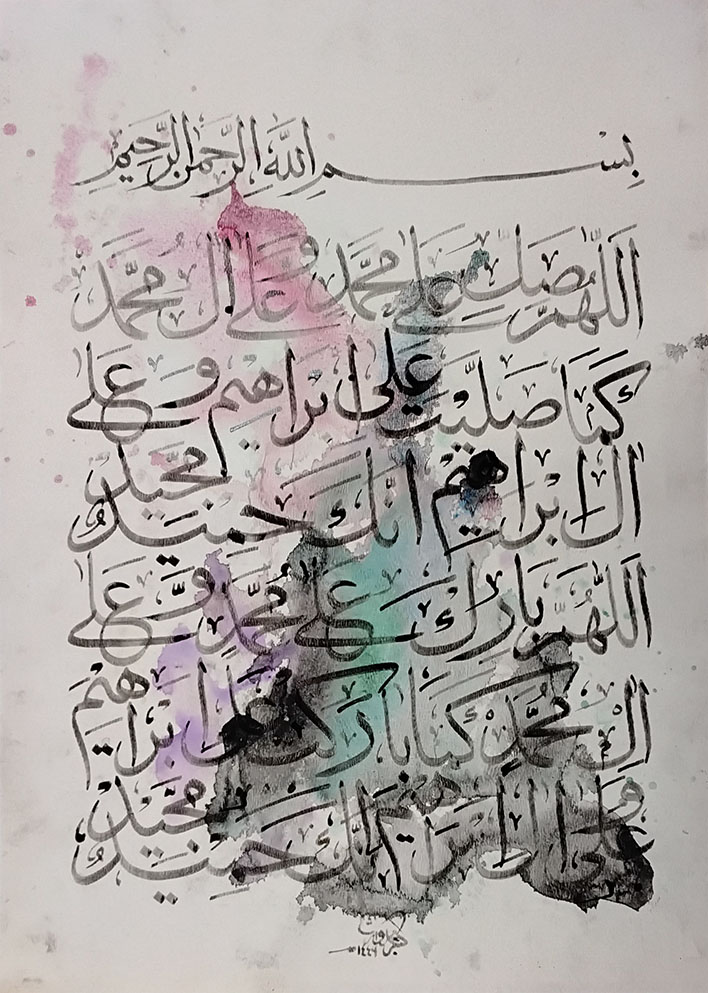 بِسْمِ اللَّهِ الرَّحْمٰنِ الرَّحِيمِ
اللّٰهُمَّ صَلِّ عَلٰى مُحَمَّدٍ وَّعَلٰى اٰلِ مُحَمَّدٍ
كَمَا صَلَّيْتَ عَلٰى اِبْرَاهِيمَ وَعَلٰى
اٰلِ اِبْرَاهِيمَ اِنَّكَ حَمِيْدٌ مَّجِيْدٌ
اللّٰهُمَّ بَارِكْ عَلٰى مُحَمَّدٍ وَّعَلٰى
اٰلِ مُحَمَّدٍ كَمَا بَارَكْتَ عَلٰى اِبْرَاهِيمَ
وَعَلٰى اٰلِ اِبْرَاهِيمَ اِنَّكَ حَمِيْدٌ مَّجِيْدٌ